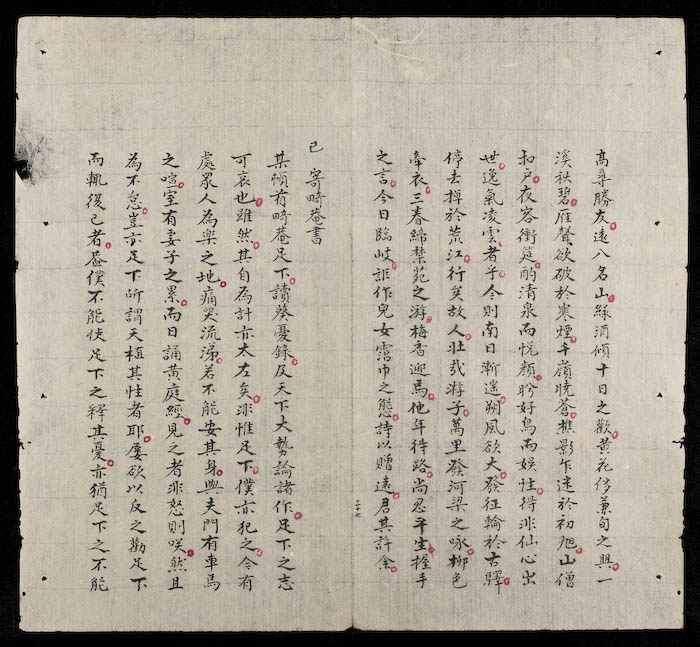 高尋勝友遠入名山綠酒傾十日之歡黃花修兼旬之興一
溪秋碧雁聲欲破於寒煙千嶺曉蒼樵影乍迷於初旭山僧
扣戶夜客衝筵酌清泉而悅顏盻好鳥而娛性得非仙心出
世逸氣凌雲者乎今則南日漸遙朔風欲大發征輪於古驛
停去棹於荒江行矣故人壯哉游子萬里發河梁之咏柳色
牽衣三春締禁苑之游梅香迎馬他年待路尚忍平生握手
之言今日臨岐詎作兒女霑巾之態詩以贈遠君其許余
二十七
己 寄畸菴書
某頓首畸菴足下讀葵憂錄及天下大勢論諸作足下之志
可哀也雖然其自為計亦太左矣非惟足下僕亦犯之今有
處眾人為樂之地痛哭流涕若不能安其身與夫門有車馬
之喧室有妻子之累而日誦黃庭經見之者非怒則咲然且
為不怠豈亦足下所謂天植其性者耶屢欲以反之勸足下
而輒復已者蓋僕不能使足下之釋其憂亦猶足下之不能